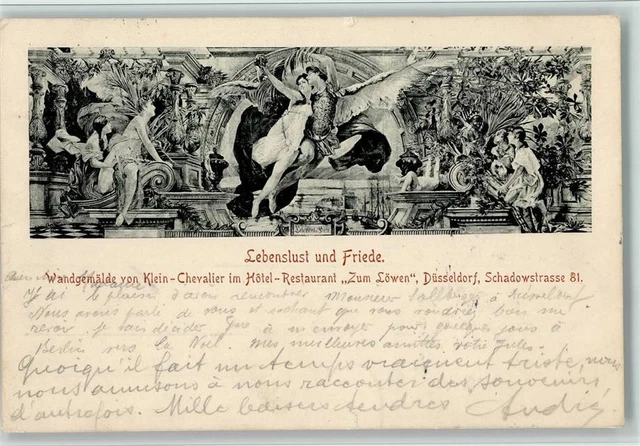 Lebenslust und Friede.
Wandgemälde von Klein-Chevalier im Hôtel-Restaurant „Zum Löwen“, Düsseldorf, Schadowstrasse 81.
J'ai le plaisir d'avoir rencontrer Monsieur à Düsseldorf
Nous avons parlé de vous et sachant que vous voudriez bien me
revoir je suis décidée à m'envoyer pour quelques jours à
Berlin vers la Noël. Mes meilleures amitiés votre Jules.
Quoiqu'il fait un temps vraiment triste, nous
nous amusons à nous raconter des souvenirs
d'autrefois. Mille baisers tendres